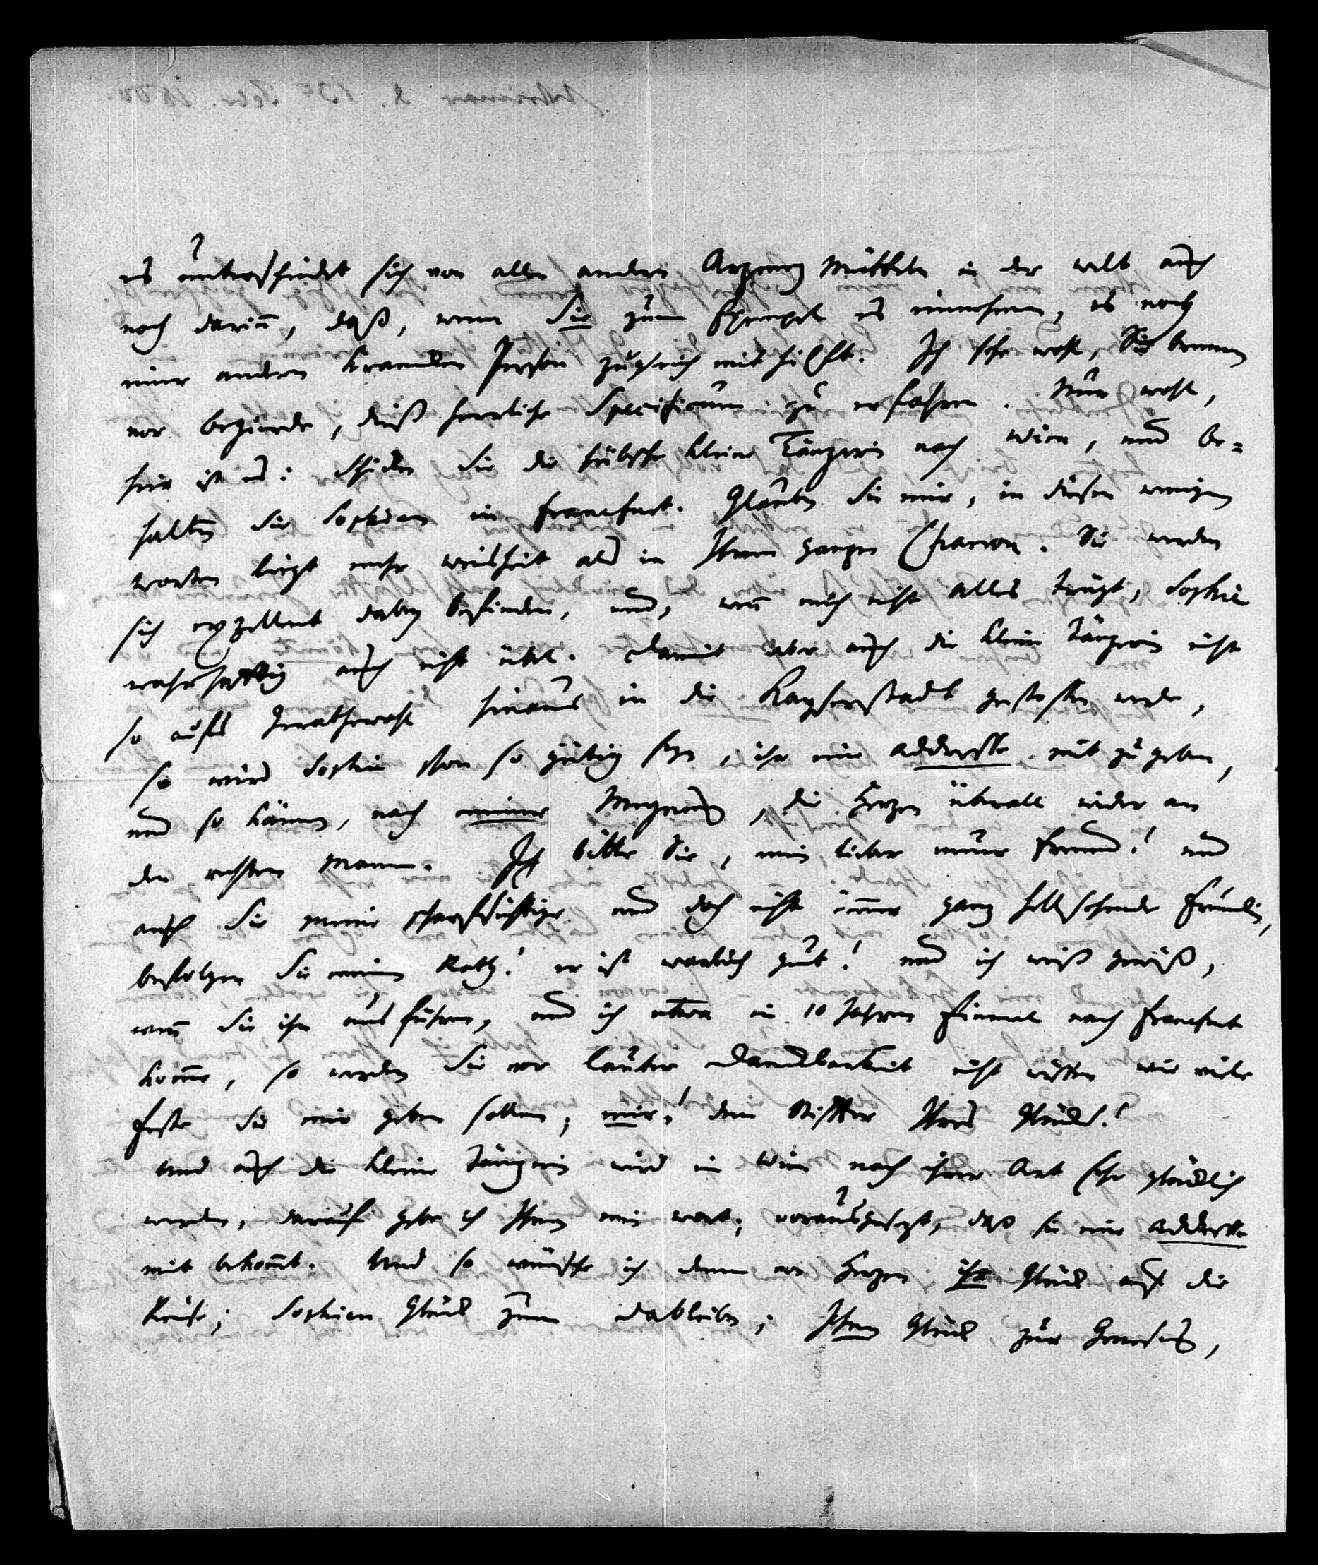 es unterscheidet sich von allen andern Arzeney Mitteln in der welt auch
noch darin, daß, wenn Sie zum Exempel es einnehmen, es noch
einer andern kranken Person zugleich mit hilft. Ich sehe wohl, Sie brennen
vor begierde, dieß herrliche Specificum zu erfahren. Nun wohl,
hier ist es: Schicken Sie die hübsche kleine Tänzerin nach Wien, und be=
halten Sie Sophien in Franckfurt. Glauben Sie mir, in diesen wenigen
worten liegt mehr weisheit als in Ihrem ganzen Charron. Sie werden
sich exzellent dabey befinden, und, wenn mich nicht alles trügt, Sophie
wahrhafftig auch nicht übel. Damit aber auch die kleine Tänzerin nicht
so aufs Gerathewohl hinaus in die Kayserstadt gestoßen werde,
so wird Sophie schon so gütig seyn, ihr eine addresse mit zu geben,
und so kämen, nach meiner Meynung, die Herzen überall wieder an
den rechten Mann. Ich bitte Sie, mein lieber neuer Freund! und
auch Sie meine scharfsichtige und doch nicht immer ganz hellsehende Freundin,
befolgen Sie meinen Rath! er ist warlich gut! und ich weiß gewiß,
wenn Sie ihn ausführen, und ich etwa in 10 Jahren einmal nach Franckfurt
komme, so werden Sie vor lauter Danckbarkeit nicht wissen wie viele
Feste Sie mir geben sollen; mir! dem Stiffter Ihres Glücks!
Und auch die kleine Tänzerin wird in Wien nach ihrer Art sehr glücklich
werden, darauf gebe ich Ihnen mein wort; vorausgesezt, daß sie eine addresse
mit bekommt. Und so wünsche ich denn von Herzen ihr Glück auf die
Reise; Sophien Glück zum dableiben; Ihnen Glück zur Genesung,